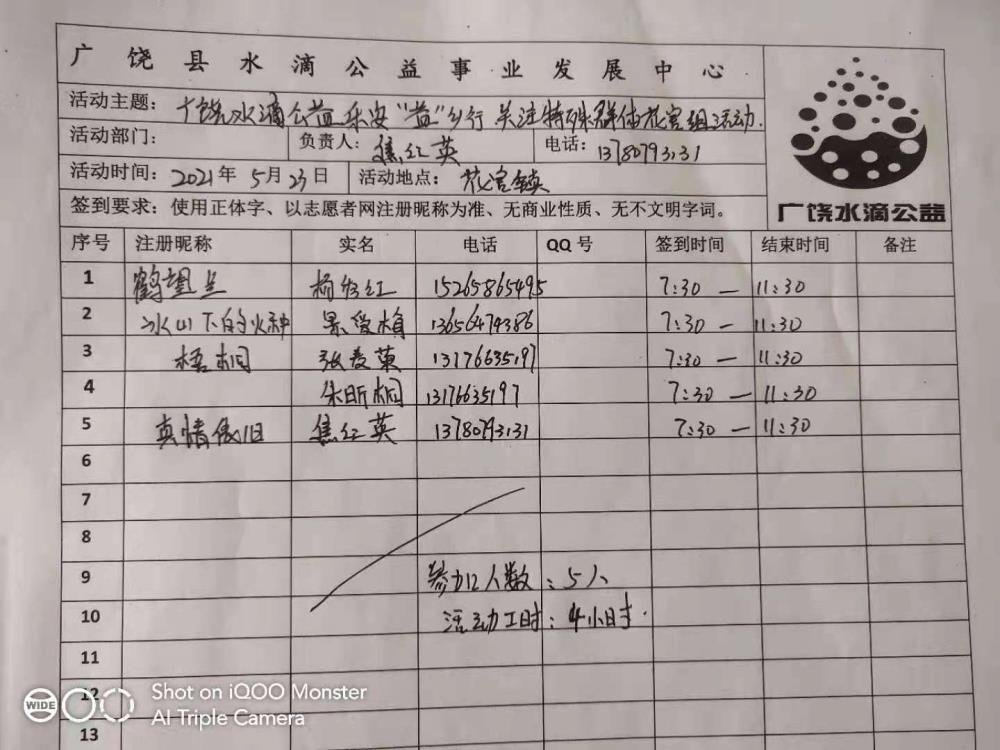 广饶县水滴公益事业发展中心
活动主题：广饶水滴公益乐安“益”乡行 关注特殊群体花官组活动.
活动部门： 负责人：焦红英 电话：13780793131
活动时间：2021年 5月 23日 活动地点：花官镇
签到要求：使用正体字、以志愿者网注册昵称为准、无商业性质、无不文明字词。
广饶水滴公益
序号 注册昵称 实名 电话 QQ号 签到时间 结束时间 备注
1 鹤望兰 红 15265865495 7:30 — 11:30
2 冰山下的火种 13656479386 7:30 — 11:30
3 梧桐 张爱英 13176635197 7:30 — 11:30
4 朱昕桐 13176635197 7:30 — 11:30
5 真情依旧 焦红英 13780793131 7:30 — 11:30
6
7
8
9 参加人数：5人
10 活动工时：4小时.
11
12
13
WIDE
Shot on iQOO Monster
AI Triple Camera